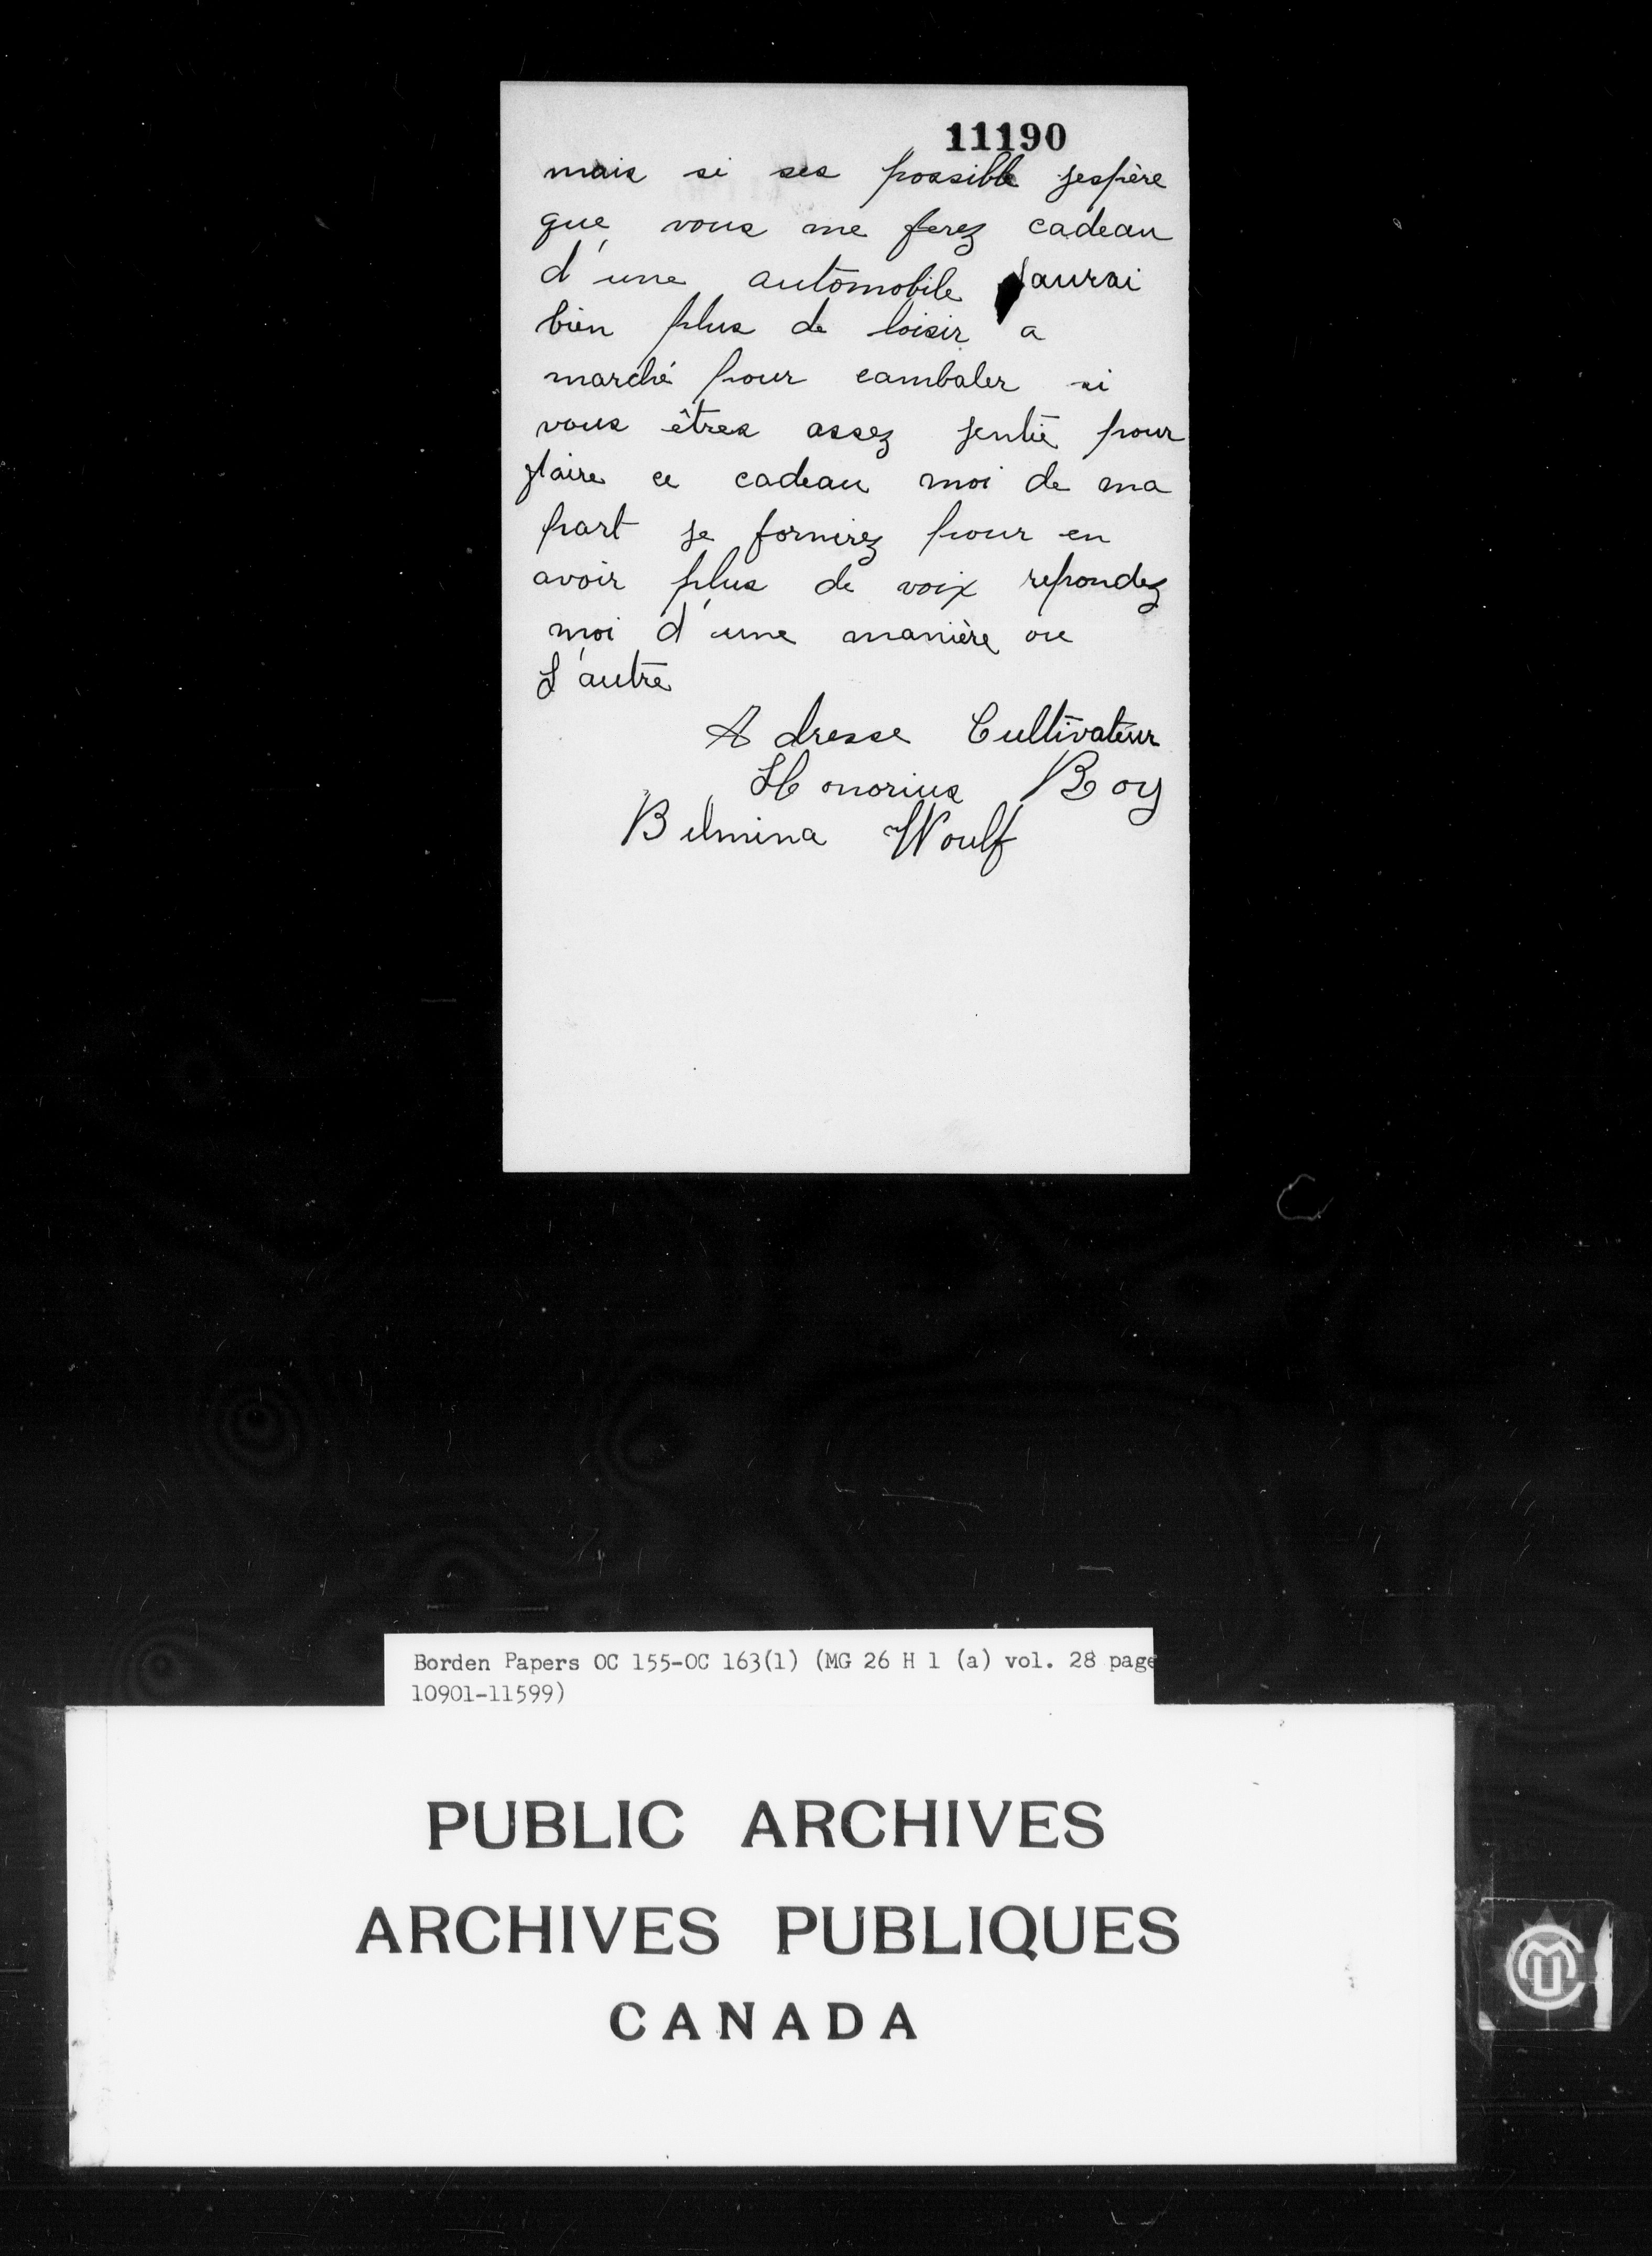 11190
mais si ses possible jespère
que vous me ferez cadeau
d'une automobile Jaurai
bien plus de loisir a
marché pour cambaler si
vous êtres assez jentié pour
faire ce cadeau moi de ma
part je fornirez pour en
avoir plus de voix repondez
moi d'une manière ou
L'autre
Adresse Cultivateur
Honorius Roy
Bulmina Woulf
Borden Papers OC 155-OC 163(1) (MG 26 H 1 (a) vol. 28 page
10901-11599)
PUBLIC ARCHIVES
ARCHIVES PUBLIQUES
CANADA